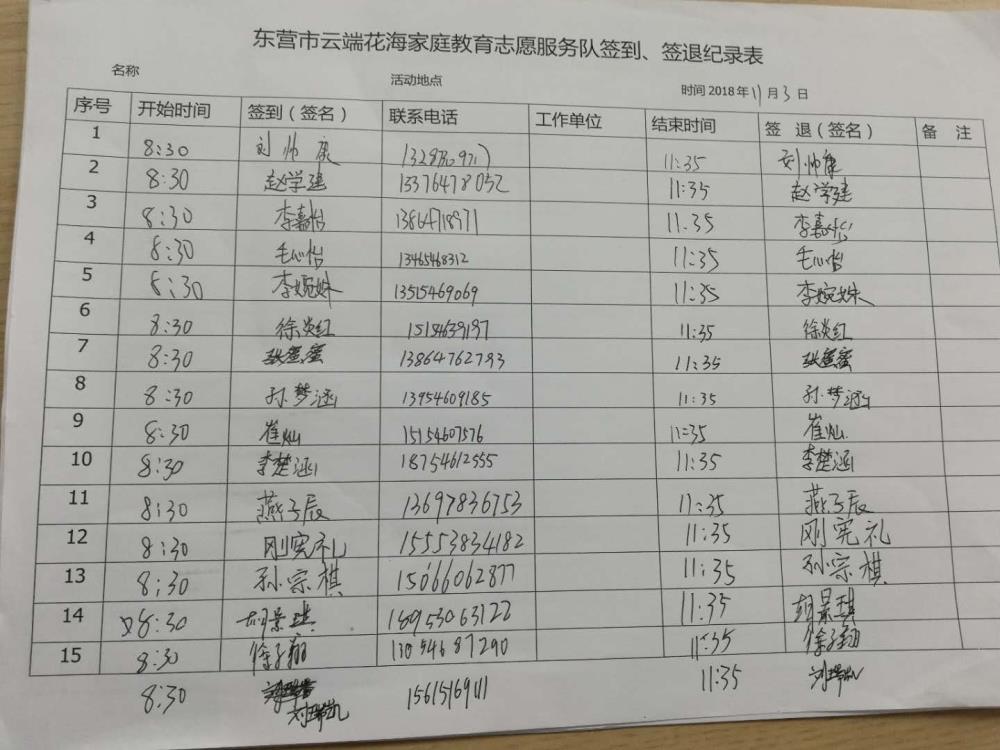 东营市云端花海家庭教育志愿服务队签到、签退纪录表
名称 活动地点 时间 2018 年 11 月 3 日
序号 开始时间 签到（签名） 联系电话 工作单位 结束时间 签 退（签名） 备 注
1 8:30 刘帅康 11:35 刘帅康
2 8:30 赵学建 13376478052 11:35 赵学建
3 8:30 李嘉怡 13864718971 11.35 李嘉怡
4 8:30 毛心怡 13465468312 11:35 毛心怡
5 8:30 李婉姝 13515469069 11:35 李婉姝
6 8:30 徐炎红 15154639197 11:35 徐炎红
7 8:30 13864762793 11:35
8 8:30 孙梦涵 13954609185 11:35 孙梦涵
9 8:30 崔灿 15154607576 11:35 崔灿
10 8:30 李楚涵 18754612555 11:35 李楚涵
11 8:30 燕子辰 13697836753 11:35 燕子辰
12 8:30 刚宪礼 15553834182 11:35 刚宪礼
13 8:30 孙宗祺 15066062877 11:35 孙宗祺
14 8:30 胡景琪 18953063122 11:35 胡景琪
15 8:30 徐子翔 13054687290 11:35 徐子翔
8:30 刘瑞凯 15615169111 11:35 刘瑞凯